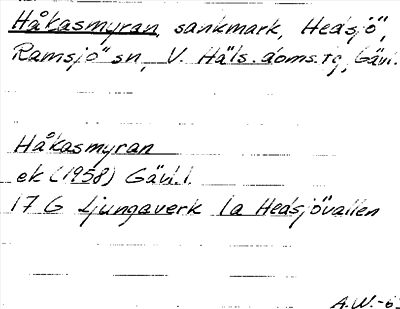 Håkasmyran, sankmark, Hedsjö,
Ramsjö sn, V. Häls. doms.tg, Gävl.
Håkasmyran
ek (1958) Gävl.l.
17 G Ljungaverk 1a Hedsjövallen
A.W.-6